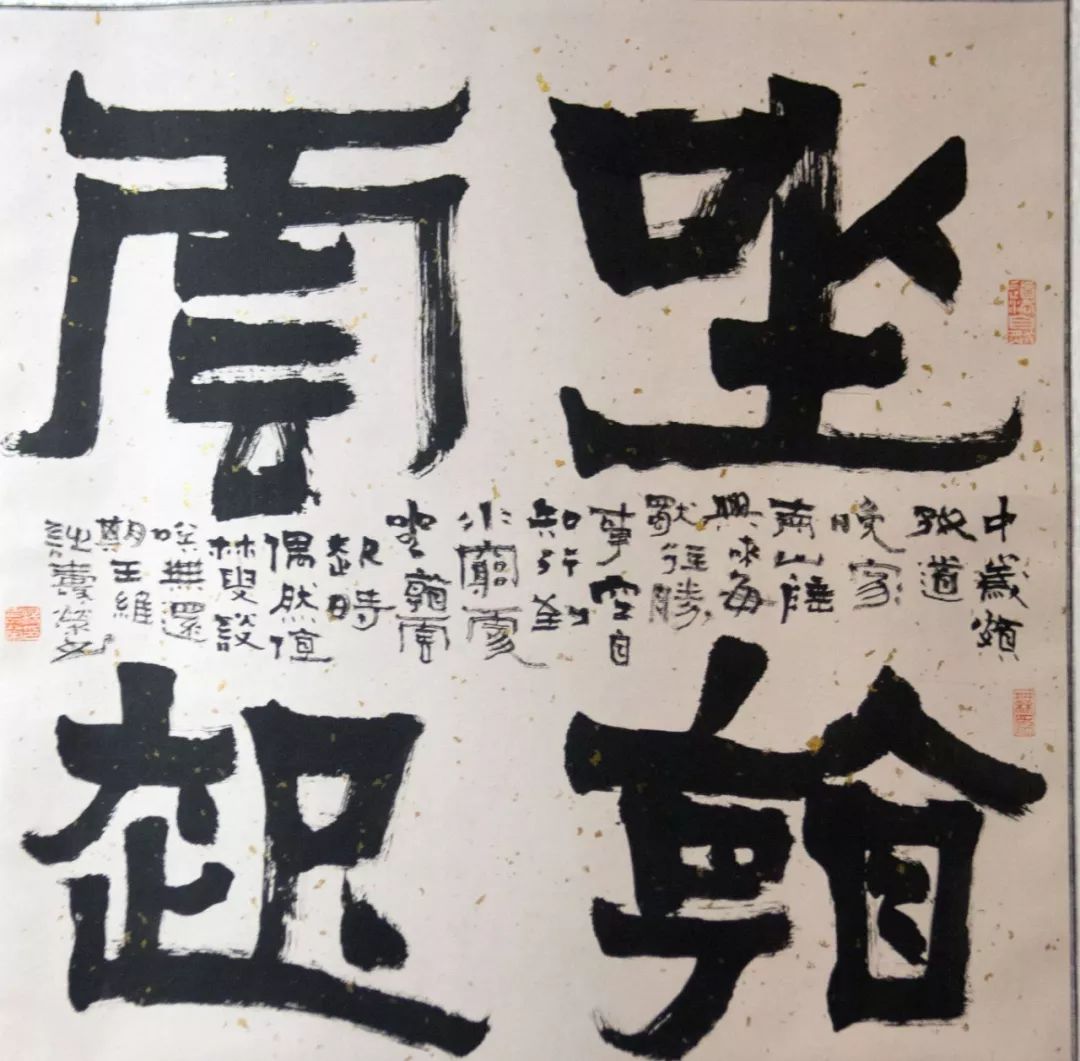 坐看
雲起
中歲頗
好道
晚家
南山陲
興來每
獨往勝
事空自
知行到
水窮處
坐看雲
起時
偶然值
林叟談
笑無還
期王維